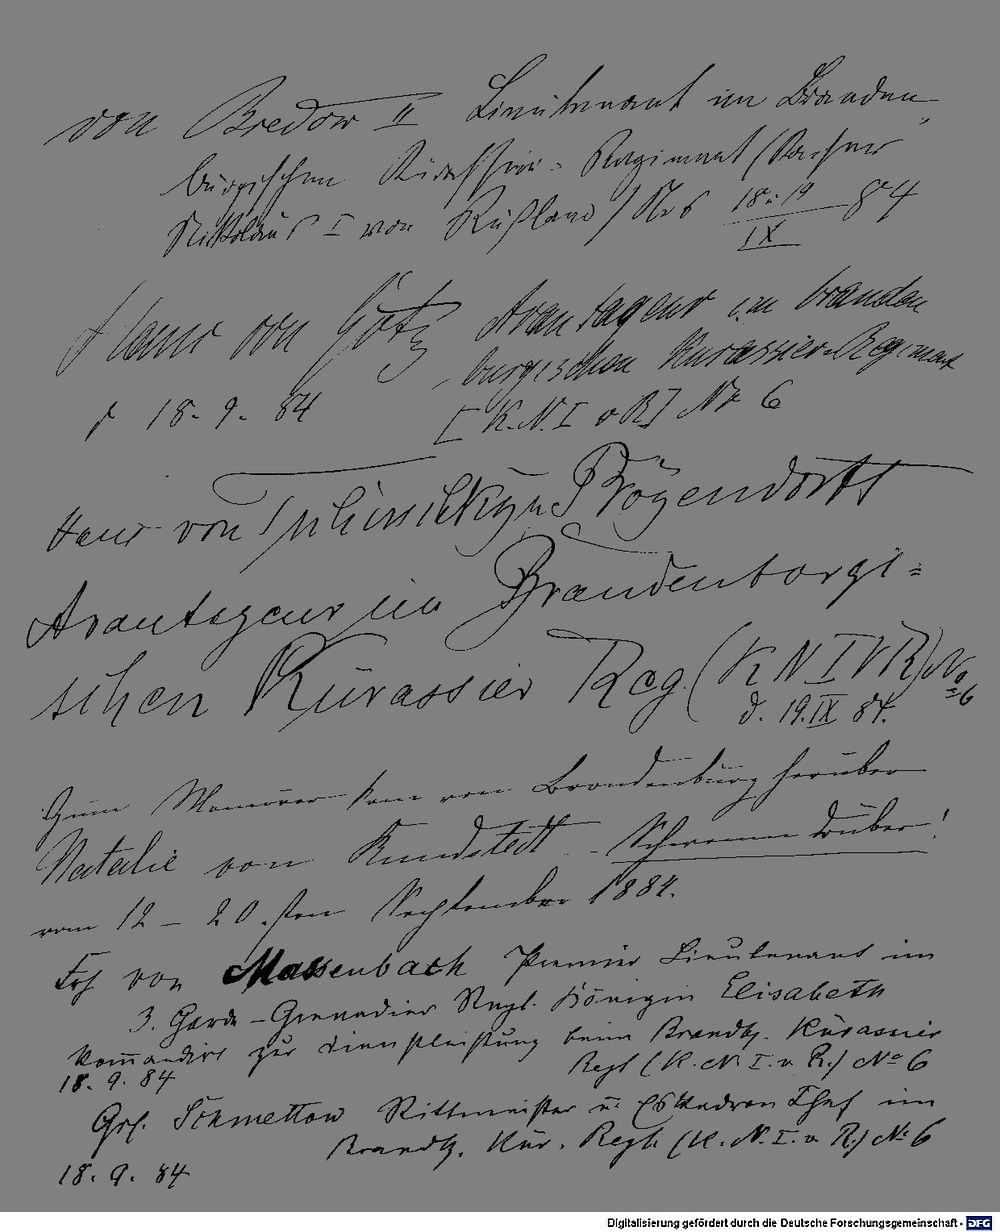 von Bredow II Lieutenant im Branden-
burgischen Kürassier-Regiment (Kaiser
Nikolaus I von Rußland) Nr 6 18 u 19 84
IX
Hans von Götz Avantageur im branden
burgischen Kurassier-Regiment
d 18. 9. 84 [K. N. I v R] Nr 6
Hans von
Avantageur im Brandenborgi=
schen Kürassier Reg (K N I v R) No 6
d. 19. IX 84.
Zum Manöver kam von Brandenburg herüber
Natalie von Rundstedt - Schwamm drüber!
vom 12 - 20. ten September 1884.
Frh von Massenbach Premier Lieutenant im
3. Garde-Grenadier Regt. Königin Elisabeth
kommandirt zur Dienstleistung beim Brandbg. Kürassier
Regt (K. N. I. v. R.) No 6
18. 9. 84
Grf. Schmettow Rittmeister u. Eskadron Chef im
Brandbg. Kür. Regt. (K. N. I. v. R.) No 6
18. 9. 84
Digitalisierung gefördert durch die Deutsche Forschungsgemeinschaft - DFG